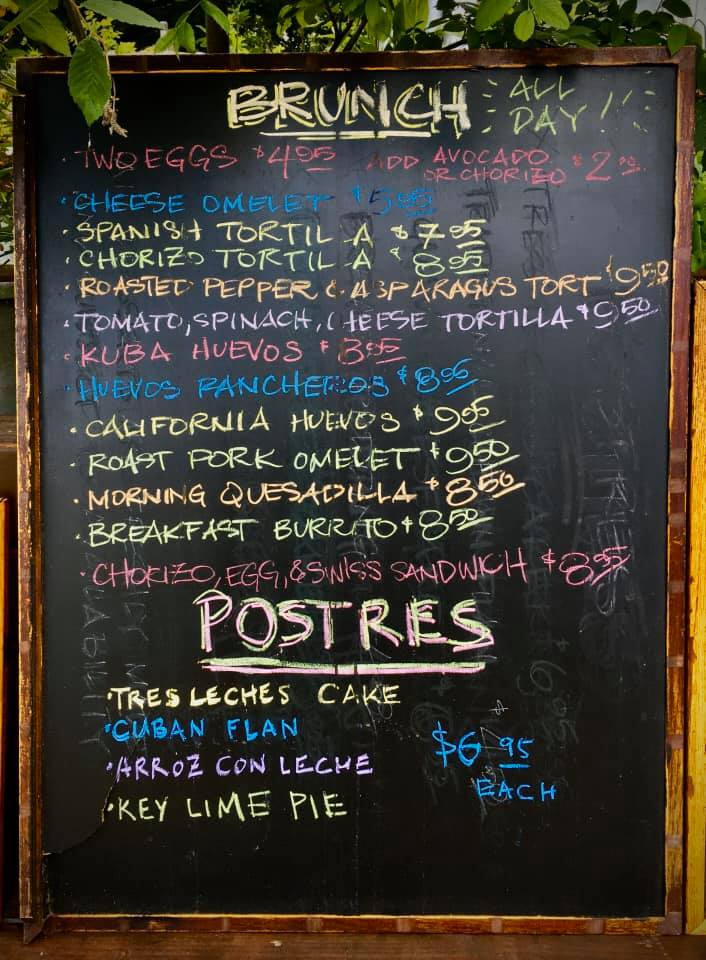 BRUNCH ALL DAY!
· TWO EGGS $4.95 ADD AVOCADO OR CHORIZO $2.00
· CHEESE OMELET $5.95
· SPANISH TORTIL A $7.95
· CHORIZO TORTIL A $8.95
· ROASTED PEPPER & ASPARAGUS TORT $9.50
· TOMATO, SPINACH, CHEESE TORTILLA $9.50
· KUBA HUEVOS $8.95
· HUEVOS RANCHEROS $8.95
· CALIFORNIA HUEVOS $9.95
· ROAST PORK OMELET $9.50
· MORNING QUESADILLA $8.50
· BREAKFAST BURRITO $8.50
· CHORIZO, EGG, & SWISS SANDWICH $8.95
POSTRES
· TRES LECHES CAKE
· CUBAN FLAN
· ARROZ CON LECHE
· KEY LIME PIE
$6.95
EACH